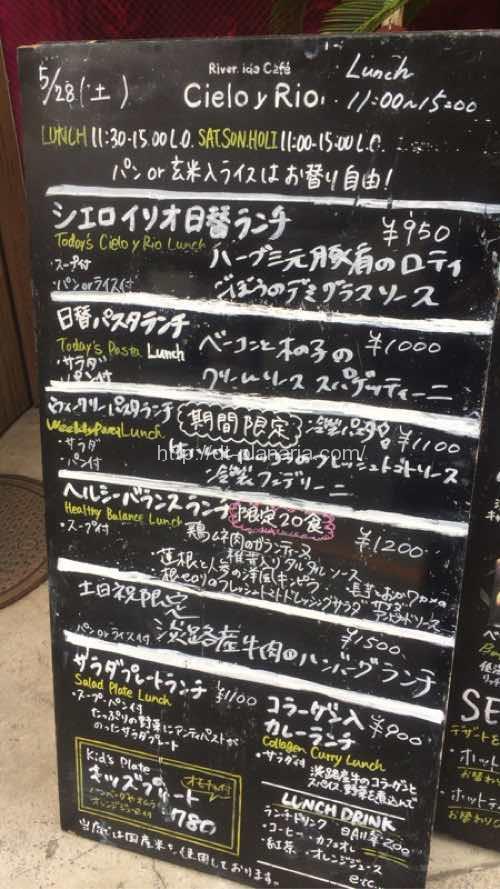 5/28(土)
River side Café
Cielo y Rio
Lunch
11:00~15:00
LUNCH 11:30-15:00 L.O. SAT.SUN.HOLI 11:00-15:00 L.O.
パン or 玄米入ライスは お替り自由!
シエロイリオ日替ランチ ¥950
Today's Cielo y Rio Lunch
・スープ付
・パン or ライス付
ハーブ三元豚肩のロティ
ごぼうのデミグラスソース
日替パスタランチ ¥1000
Today's Pasta Lunch
・サラダ
・パン付
ベーコンと木の子の
クリームソース スパゲッティーニ
ウィークリーパスタランチ
期間限定
冷製パスタ
¥1100
Weekly Pasta Lunch
・サラダ
・パン付
フレッシュトマトソース
冷製フェデリーニ
http://dt-planaria.com/
ヘルシーバランスランチ
限定20食
¥1200
Healthy Balance Lunch
・スープ付
鶏ムネ肉のガランティーヌ
タルタルソース
・蓮根と人参の洋風キンピラ
土日祝限定
パン or ライス付
¥1500
淡路産牛肉のハンバーグランチ
サラダプレートランチ
¥1100
Salad Plate Lunch
・スープ・パン付
たっぷりの野菜にアンティパストが
のったサラダプレート
コラーゲン入
カレーランチ
¥900
Collagen Curry Lunch
・サラダ付
淡路産牛のコラーゲンと
スパイス、野菜を煮込んで
Kid's Plate
オモチャ付
キッズプレート
オレンジジュース付
780
LUNCH DRINK
ランチドリンク 各200
・コーヒー・カフェオレ
・紅茶 ・オレンジジュース
etc
当店では国産米を使用しております。